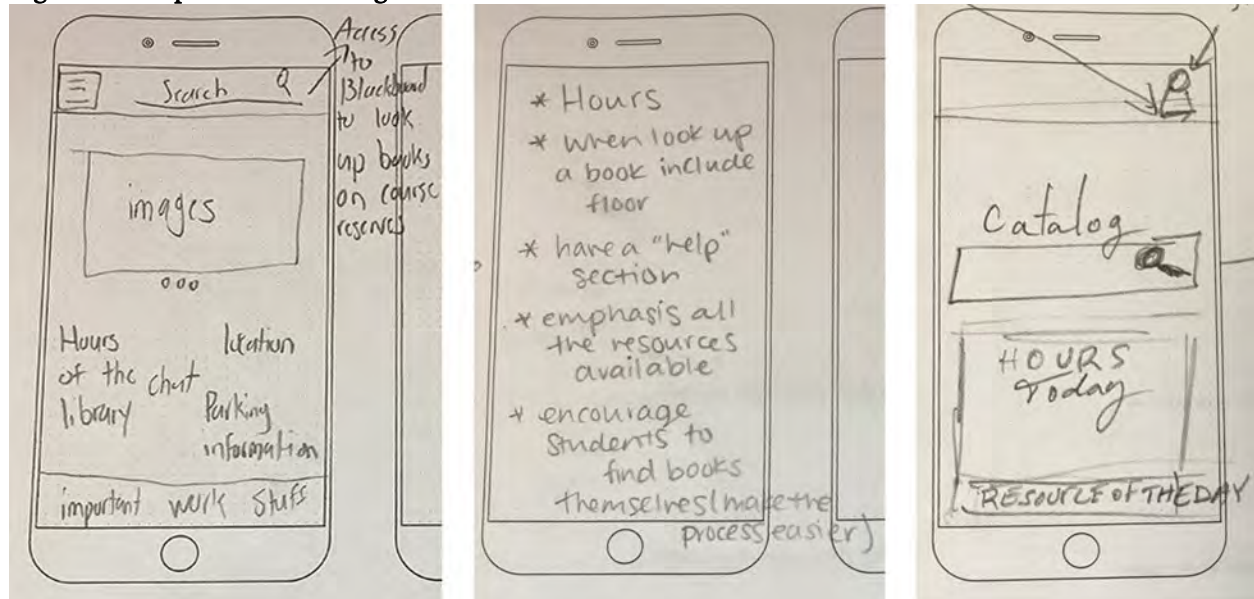 Access
to
Blackboard
to look
up books
on course
reserves
Search
images
Hours
of the
library
chat
location
Parking
information
important work stuffs
* Hours
* when look up
a book include
floor
* have a "help"
section
* emphasis all
the resources
available
* encourage
students to
find books
themselves (make the
process easier)
Catalog
HOURS
Today
RESOURCE OF THE DAY